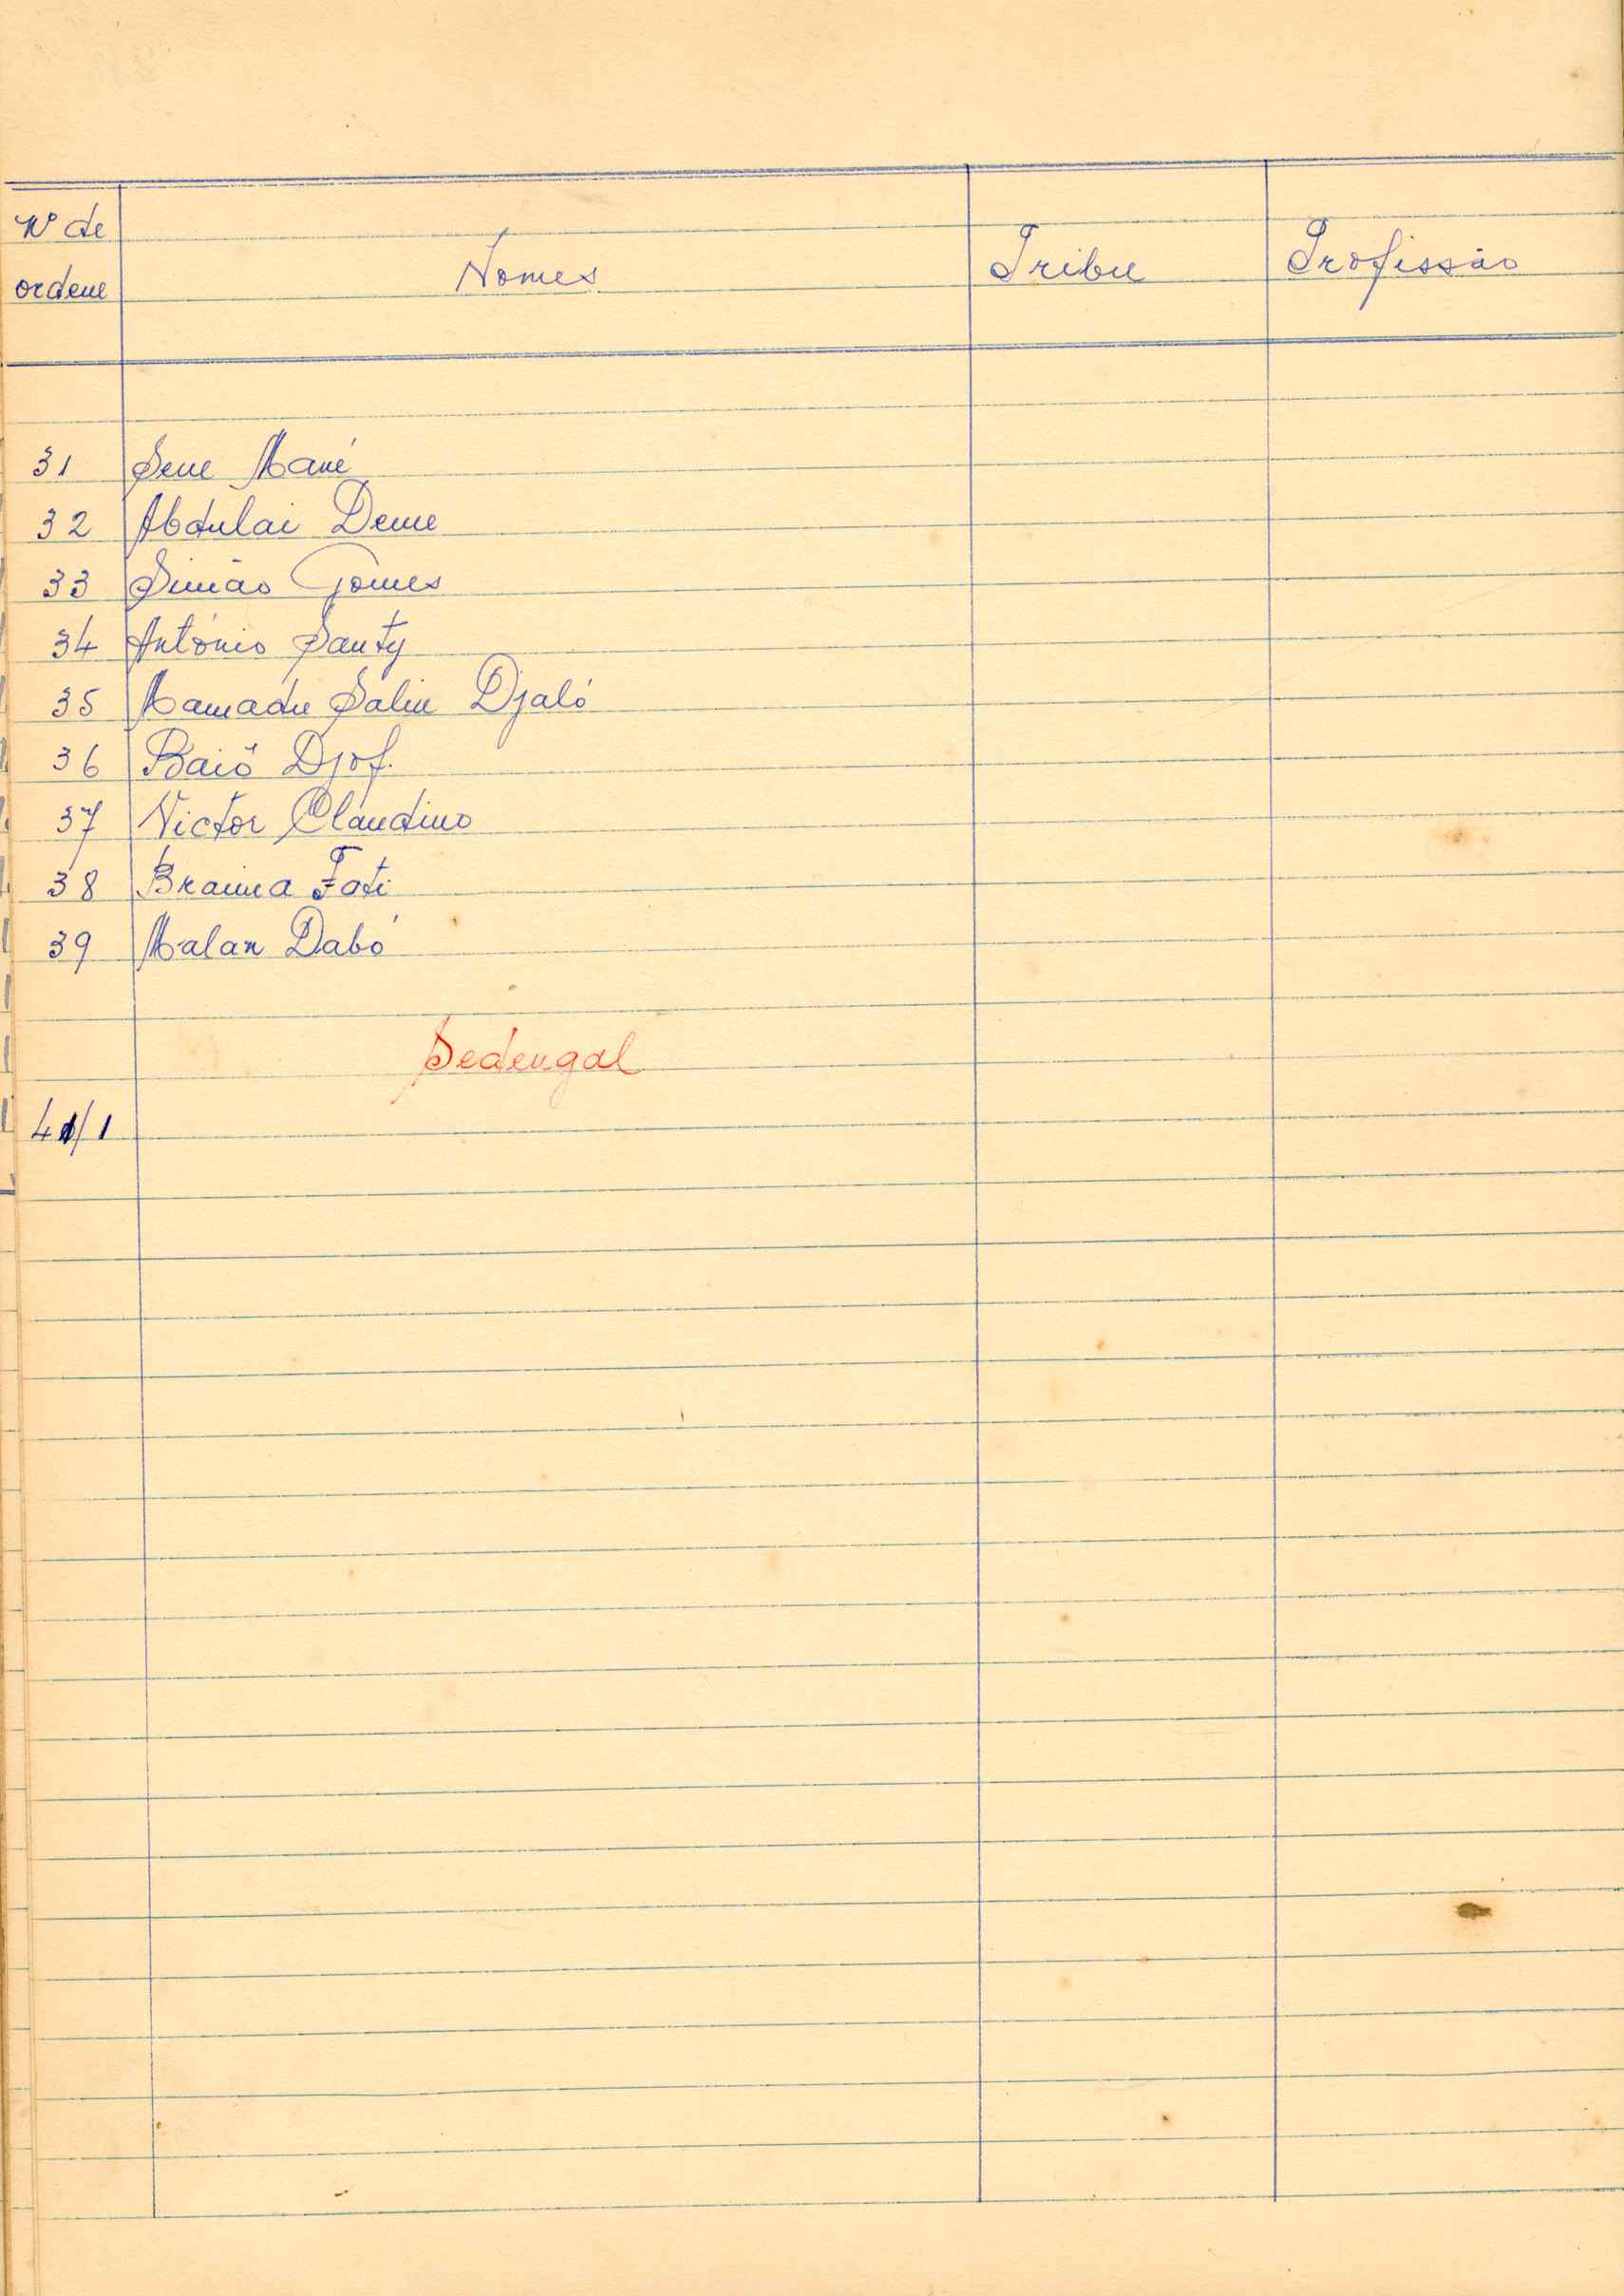 Nº de
ordem Nomes Tribu Profissão
31 Sene Mané
32 Abdulai Deme
33 Simão Gomes
34 António Santy
35 Mamadu Saliu Djaló
36 Baió Djof.
37 Victor Claudino
38 Braima Fati
39 Malan Dabó
Sedengal
/1